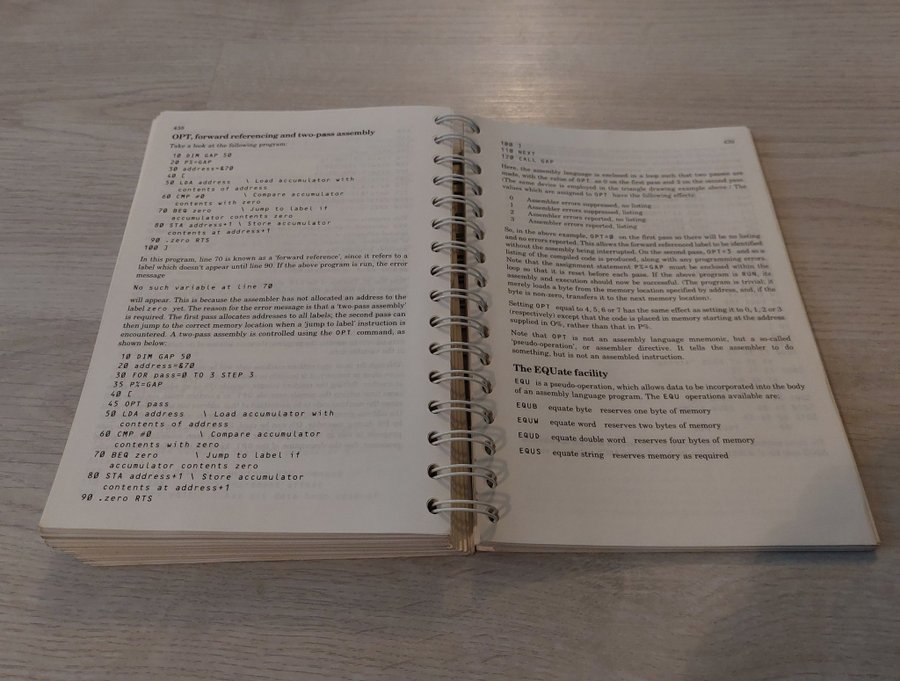 438
OPT, forward referencing and two-pass assembly
Take a look at the following program:
10 DIM GAP 50
20 P%=GAP
30 address=&70
40 [
50 LDA address \ Load accumulator with
contents of address
60 CMP #0 \ Compare accumulator
contents with zero
70 BEQ zero \ Jump to label if
accumulator contents zero
80 STA address+1 \ Store accumulator
contents at address+1
90 .zero RTS
100 ]
In this program, line 70 is known as a 'forward reference', since it refers to a
label which doesn't appear until line 90. If the above program is run, the error
message
No such variable at line 70
will appear. This is because the assembler has not allocated an address to the
label zero yet. The reason for the error message is that a 'two-pass assembly'
is required. The first pass allocates addresses to all labels; the second pass can
then jump to the correct memory location when a 'jump to label' instruction is
encountered. A two-pass assembly is controlled using the OPT command, as
shown below:
10 DIM GAP 50
20 address=&70
30 FOR pass=0 TO 3 STEP 3
35 P%=GAP
40 [
45 OPT pass
50 LDA address \ Load accumulator with
contents of address
60 CMP #0 \ Compare accumulator
contents with zero
70 BEQ zero \ Jump to label if
accumulator contents zero
80 STA address+1 \ Store accumulator
contents at address+1
90 .zero RTS
439
100 ]
110 NEXT
120 CALL GAP
Here, the assembly language is enclosed in a loop such that two passes are
made, with the value of OPT as 0 on the first pass and 3 on the second pass.
(The same device is employed in the triangle drawing example above.) The
values which are assigned to OPT have the following effects:
0 Assembler errors suppressed, no listing
1 Assembler errors suppressed, listing
2 Assembler errors reported, no listing
3 Assembler errors reported, listing
So, in the above example, OPT=0 on the first pass so there will be no listing
and no errors reported. This allows the forward referenced label to be identified
without the assembly being interrupted. On the second pass, OPT=3 and so a
listing of the compiled code is produced, along with any programming errors.
Note that the assignment statement P%=GAP must be enclosed within the
loop so that it is reset before each pass. If the above program is RUN, its
assembly and execution should now be successful. (The program is trivial; it
merely loads a byte from the memory location specified by address, and, if the
byte is non-zero, transfers it to the next memory location).
Setting OPT equal to 4, 5, 6 or 7 has the same effect as setting it to 0, 1, 2 or 3
(respectively) except that the code is placed in memory starting at the address
supplied in O%, rather than that in P%.
Note that OPT is not an assembly language mnemonic, but a so-called
'pseudo-operation', or assembler directive. It tells the assembler to do
something, but is not an assembled instruction.
The EQUate facility
EQU is a pseudo-operation, which allows data to be incorporated into the body
of an assembly language program. The EQU operations available are:
EQUB equate byte reserves one byte of memory
EQUW equate word reserves two bytes of memory
EQUD equate double word reserves four bytes of memory
EQUS equate string reserves memory as required